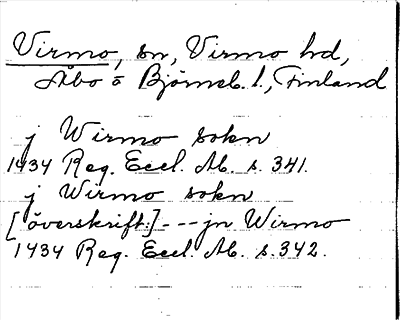 Virmo, sn, Virmo hd,
Åbo o Björneb. l., Finland
j Wirmo sokn
1434 Reg. Eccl. Ab. s. 341.
j Wirmo sokn
[överskrift:] - - - jn Wirmo
1434 Reg. Eccl. Ab. s. 342.